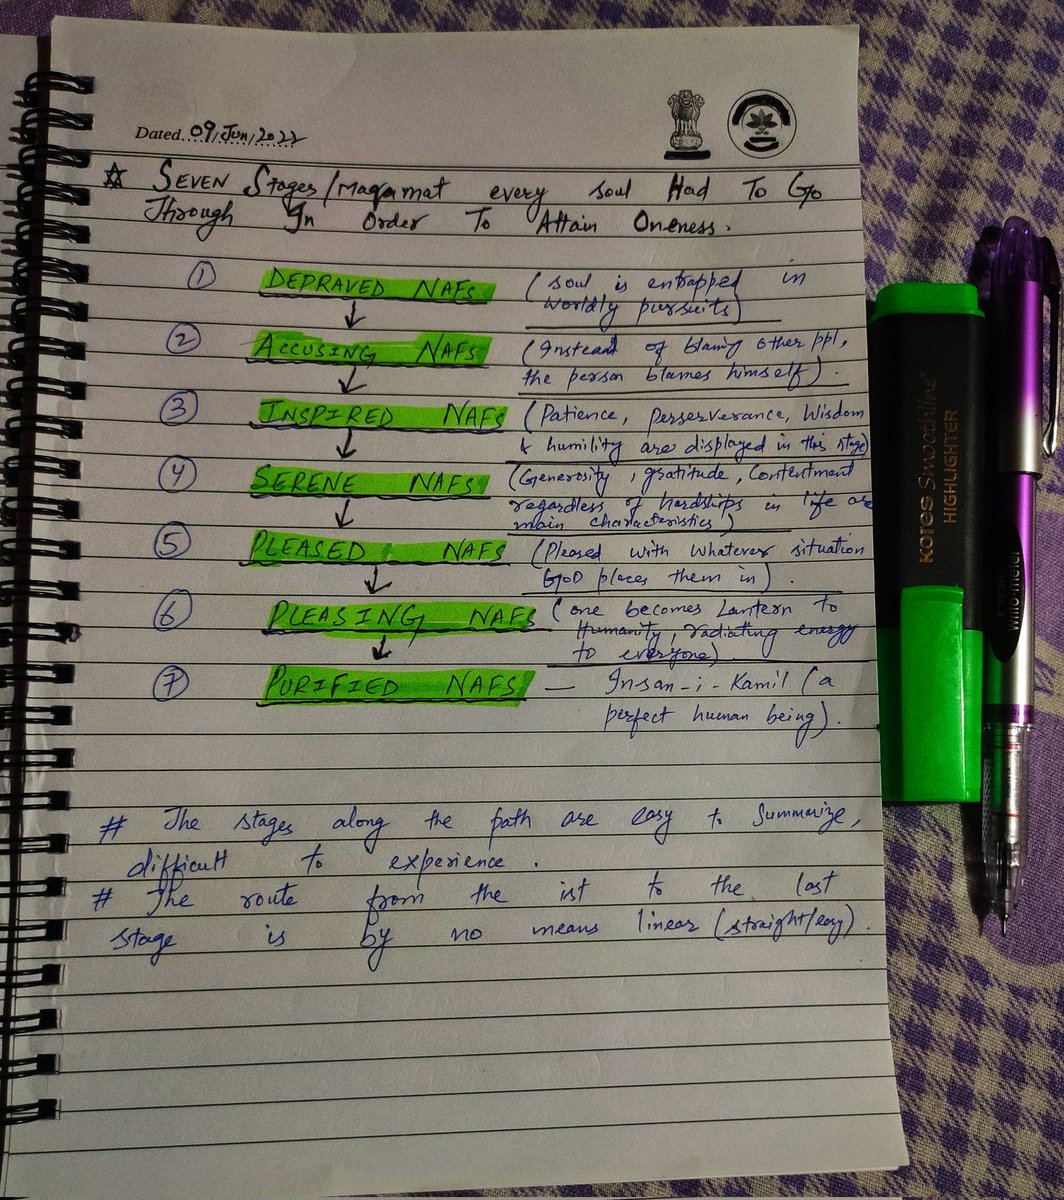 Dated. 09, Jun, 2022
☆ SEVEN Stages/Maqamat every soul Had To Go
Through In Order To Attain Oneness.
① DEPRAVED NAFS (soul is entrapped in
worldly pursuits)
② ACCUSING NAFS (Instead of blaming other ppl,
the person blames himself).
③ INSPIRED NAFS (Patience, perserverance, Wisdom
& humility are displayed in this stage)
④ SERENE NAFS (Generosity, gratitude, contentment
regardless of hardships in life are
main characteristics)
⑤ PLEASED NAFS (Pleased with whatever situation
GOD places them in).
⑥ PLEASING NAFS (one becomes Lantern to
Humanity, radiating energy
to everyone).
⑦ PURIFIED NAFS — Insan-i-Kamil (a
perfect human being).
# The stages along the path are easy to Summarize,
difficult to experience.
# The route from the 1st to the last
stage is by no means linear (straight/easy).
KORES Smoothline+
HIGHLIGHTER